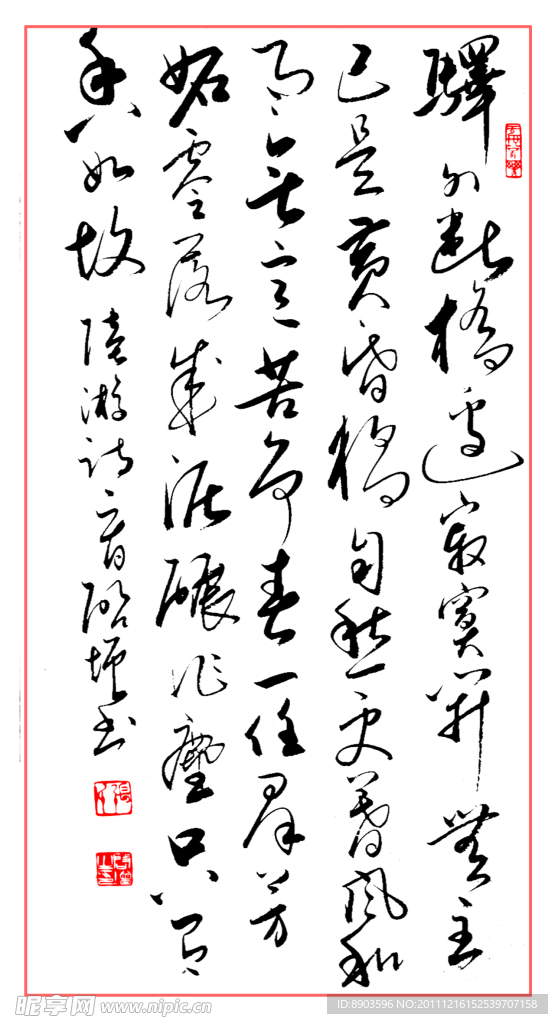 驛外斷橋邊寂寞開無主
已是黄昏獨自愁更著風和
雨無意苦争春一任群芳
妬零落成泥碾作塵只有
香如故 陸游詩 書
昵享网 www.nipic.cn
ID:8903596 NO:20111216152539707158